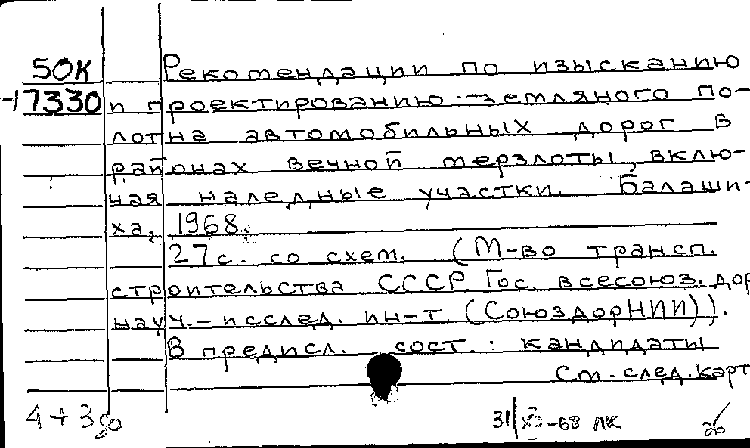 50К Рекомендации по изысканию
-17330 и проектированию земляного по-
лотна автомобильных дорог в
районах вечной мерзлоты, вклю-
чая наледные участки. Балаши-
ха, 1968.
27 с. со схем. (М-во трансп.
строительства СССР. Гос. всесоюз. дор.
науч.-исслед. ин-т (СоюздорНИИ)).
В предисл. сост.: кандидаты
См. след. карт
4+3
-68 ЛК